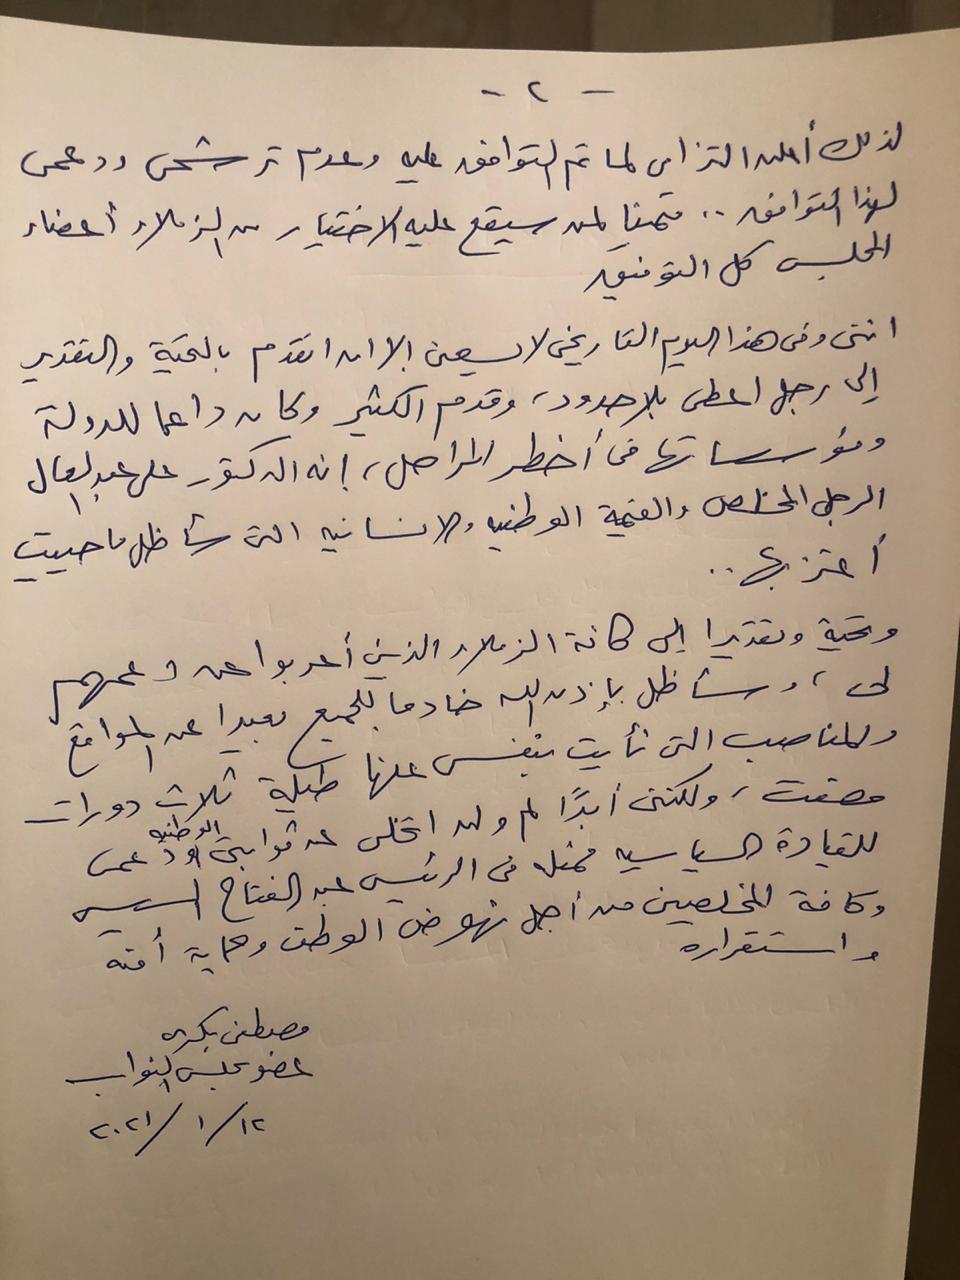 - ٢ -
لذلك أعلن التزامى لما تم التوافق عليه وعدم ترشحى ودعمى
لهذا التوافق .. متمنيا لمن سيقع عليه الاختيار من الزملاء أعضاء
المجلس كل التوفيق
اننى وفى هذا اليوم التاريخى لا يسعنى إلا ان اتقدم بالتحية والتقدير
إلى رجل اعطى بلا حدود، وقدم الكثير وكان داعما للدولة
ومؤسساتها فى أخطر المراحل، إنه الدكتور على عبد العال
الرجل المخلص والقيمة الوطنيه والانسانيه التى سأظل ما حييت
أعتز بها ..
وتحية وتقديرا إلى كافة الزملاء الذين أعربوا عن دعمهم
لى ، وسأظل بإذن الله خادما للجميع بعيدا عن المواقع
والمناصب التى نأيت بنفسى عنها طيلة ثلاث دورات
مضت ، ولكننى أبدًا لم ولن اتخلى عن ثوابتى الوطنيه ودعمى
للقيادة السياسيه ممثله فى الرئيس عبد الفتاح السيسى
وكافة المخلصين من أجل نهوض الوطن وحماية أمنه
واستقراره
مصطفى بكرى
عضو مجلس النواب
١٢ / ١ / ٢٠٢١